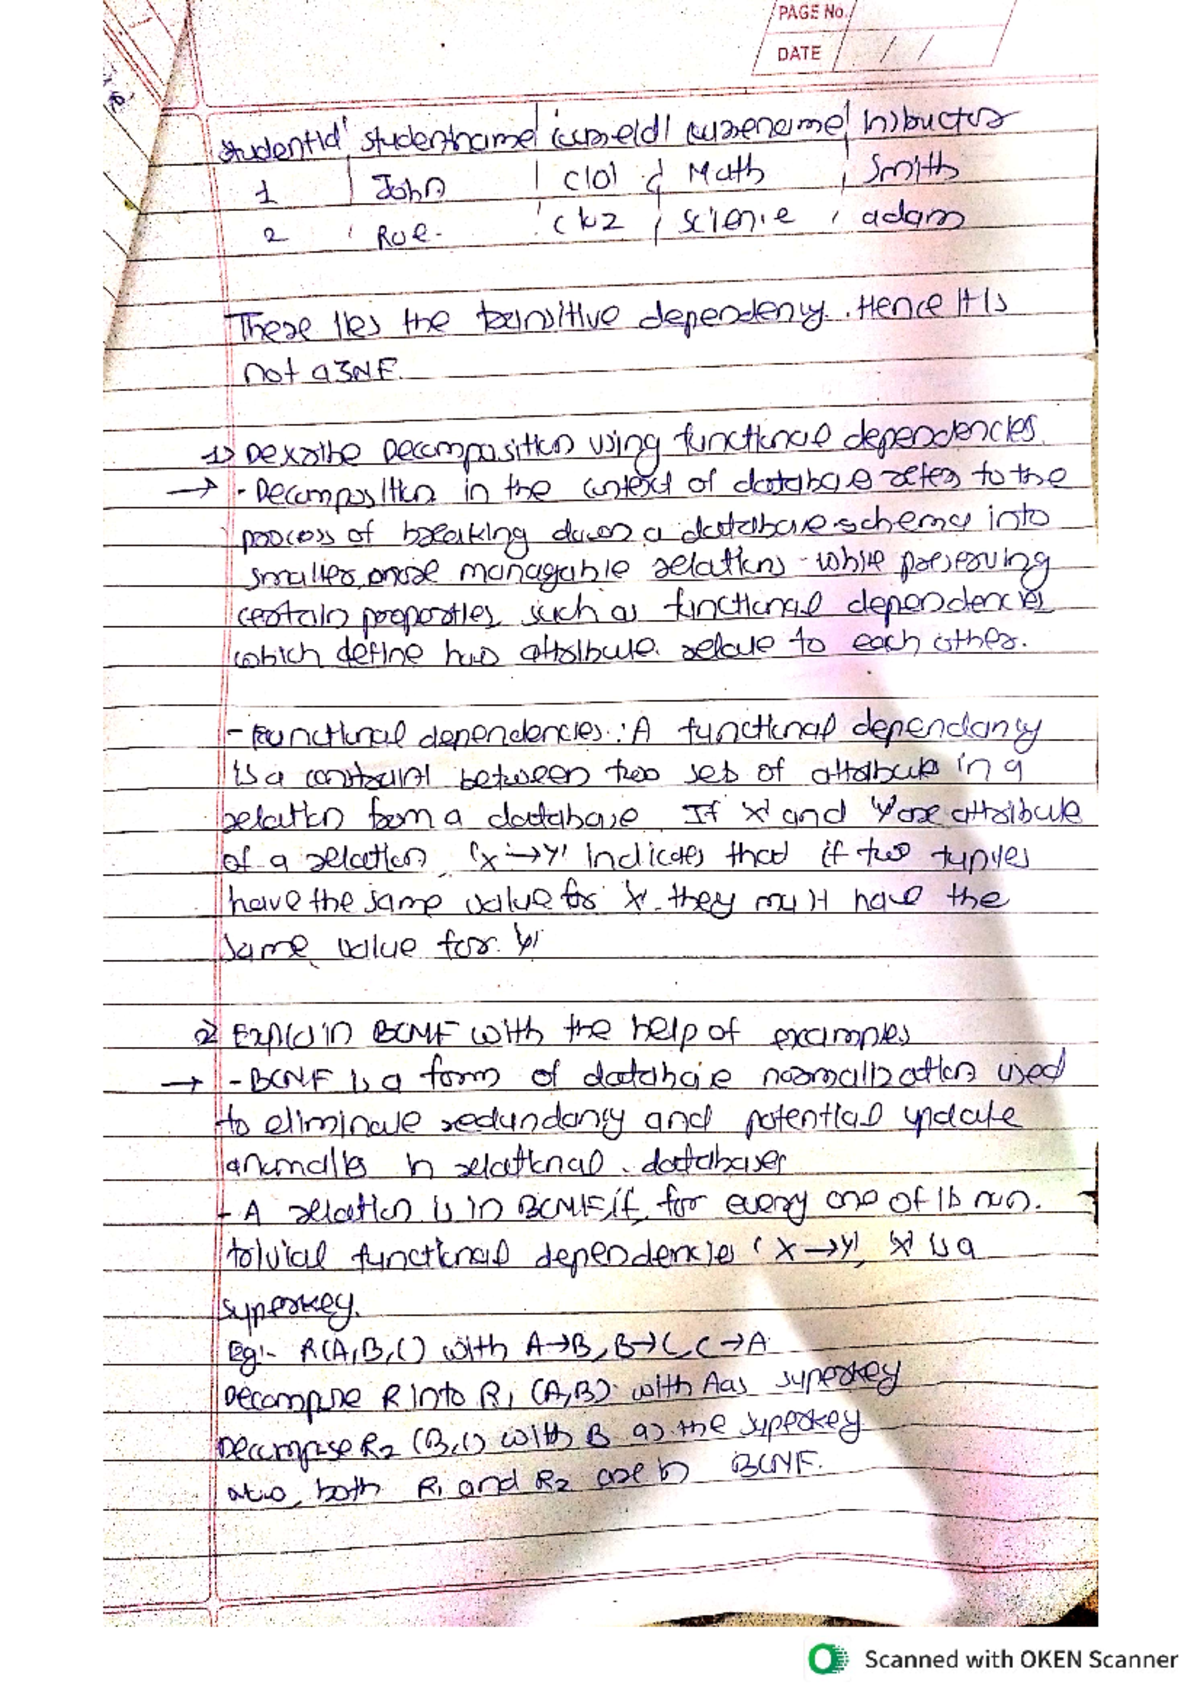 PAGE No.
DATE / /
studentId | studentname | courseId | coursename | Instructor
1 | John | C101 | Math | Smith
2 | Roe. | C102 | science | adam
There lies the transitive dependency. Hence It Is
not a 3NF.
1) Describe Decomposition using functional dependencies.
→ - Decomposition in the context of database refers to the
process of breaking down a database schema into
smaller, more managable relations while preserving
certain properties such as functional dependencies
which define how attribute relate to each other.
- Functional dependencies: A functional dependancy
is a constraint between two set of attribute in a
relation from a database. If 'X' and 'Y' are attribute
of a relation, 'X→Y' indicates that if two tuples
have the same value for 'X' they must have the
same value for 'Y'
2) Explain BCNF with the help of examples
→ - BCNF is a form of database normalization used
to eliminate redundancy and potential update
anomalies in relational databases
- A relation is in BCNF if, for every one of its non.
toivial functional dependencies 'X→Y', 'X' is a
superkey.
Eg:- R(A,B,C) with A→B, B→C, C→A
Decompose R into R1 (A,B) with A as superkey
Decompose R2 (B,C) with B as the superkey
also, both R1 and R2 are in BCNF.
Scanned with OKEN Scanner